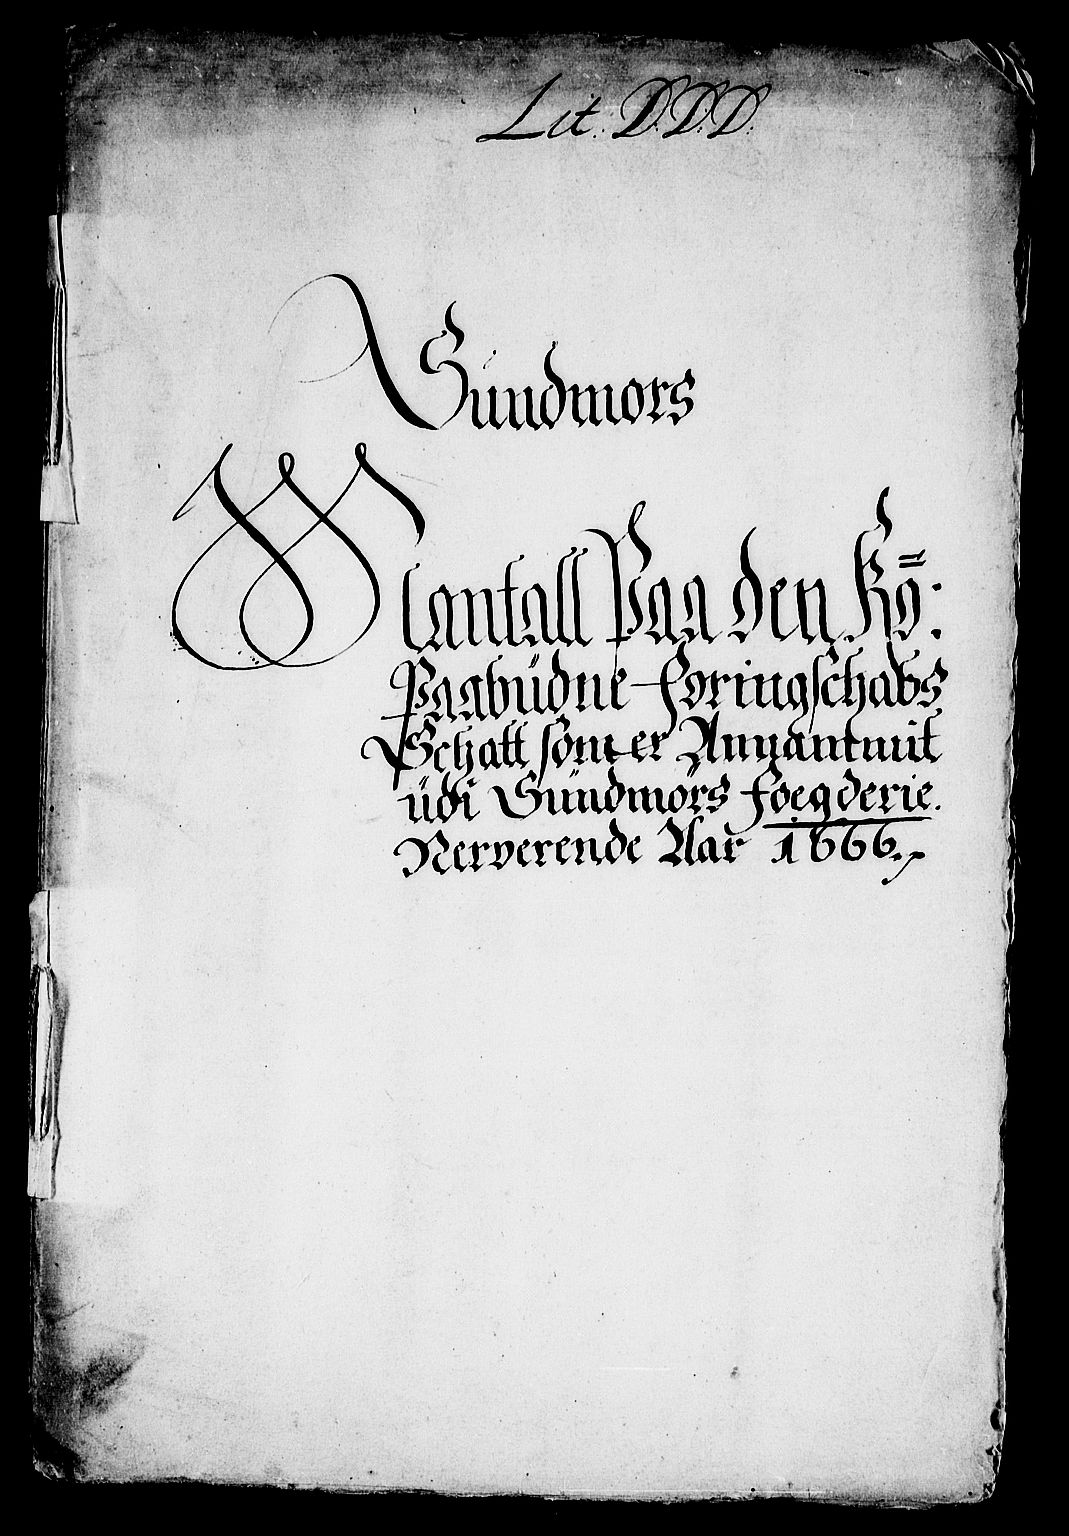 Lit: D:D:D:
Sundmors
Mantall Paa den Kō:
Paabüdne foringschabs
Schatt som er Anvantmit
üdi Sündmörs foegderie.
Nerverende Aar 1666.